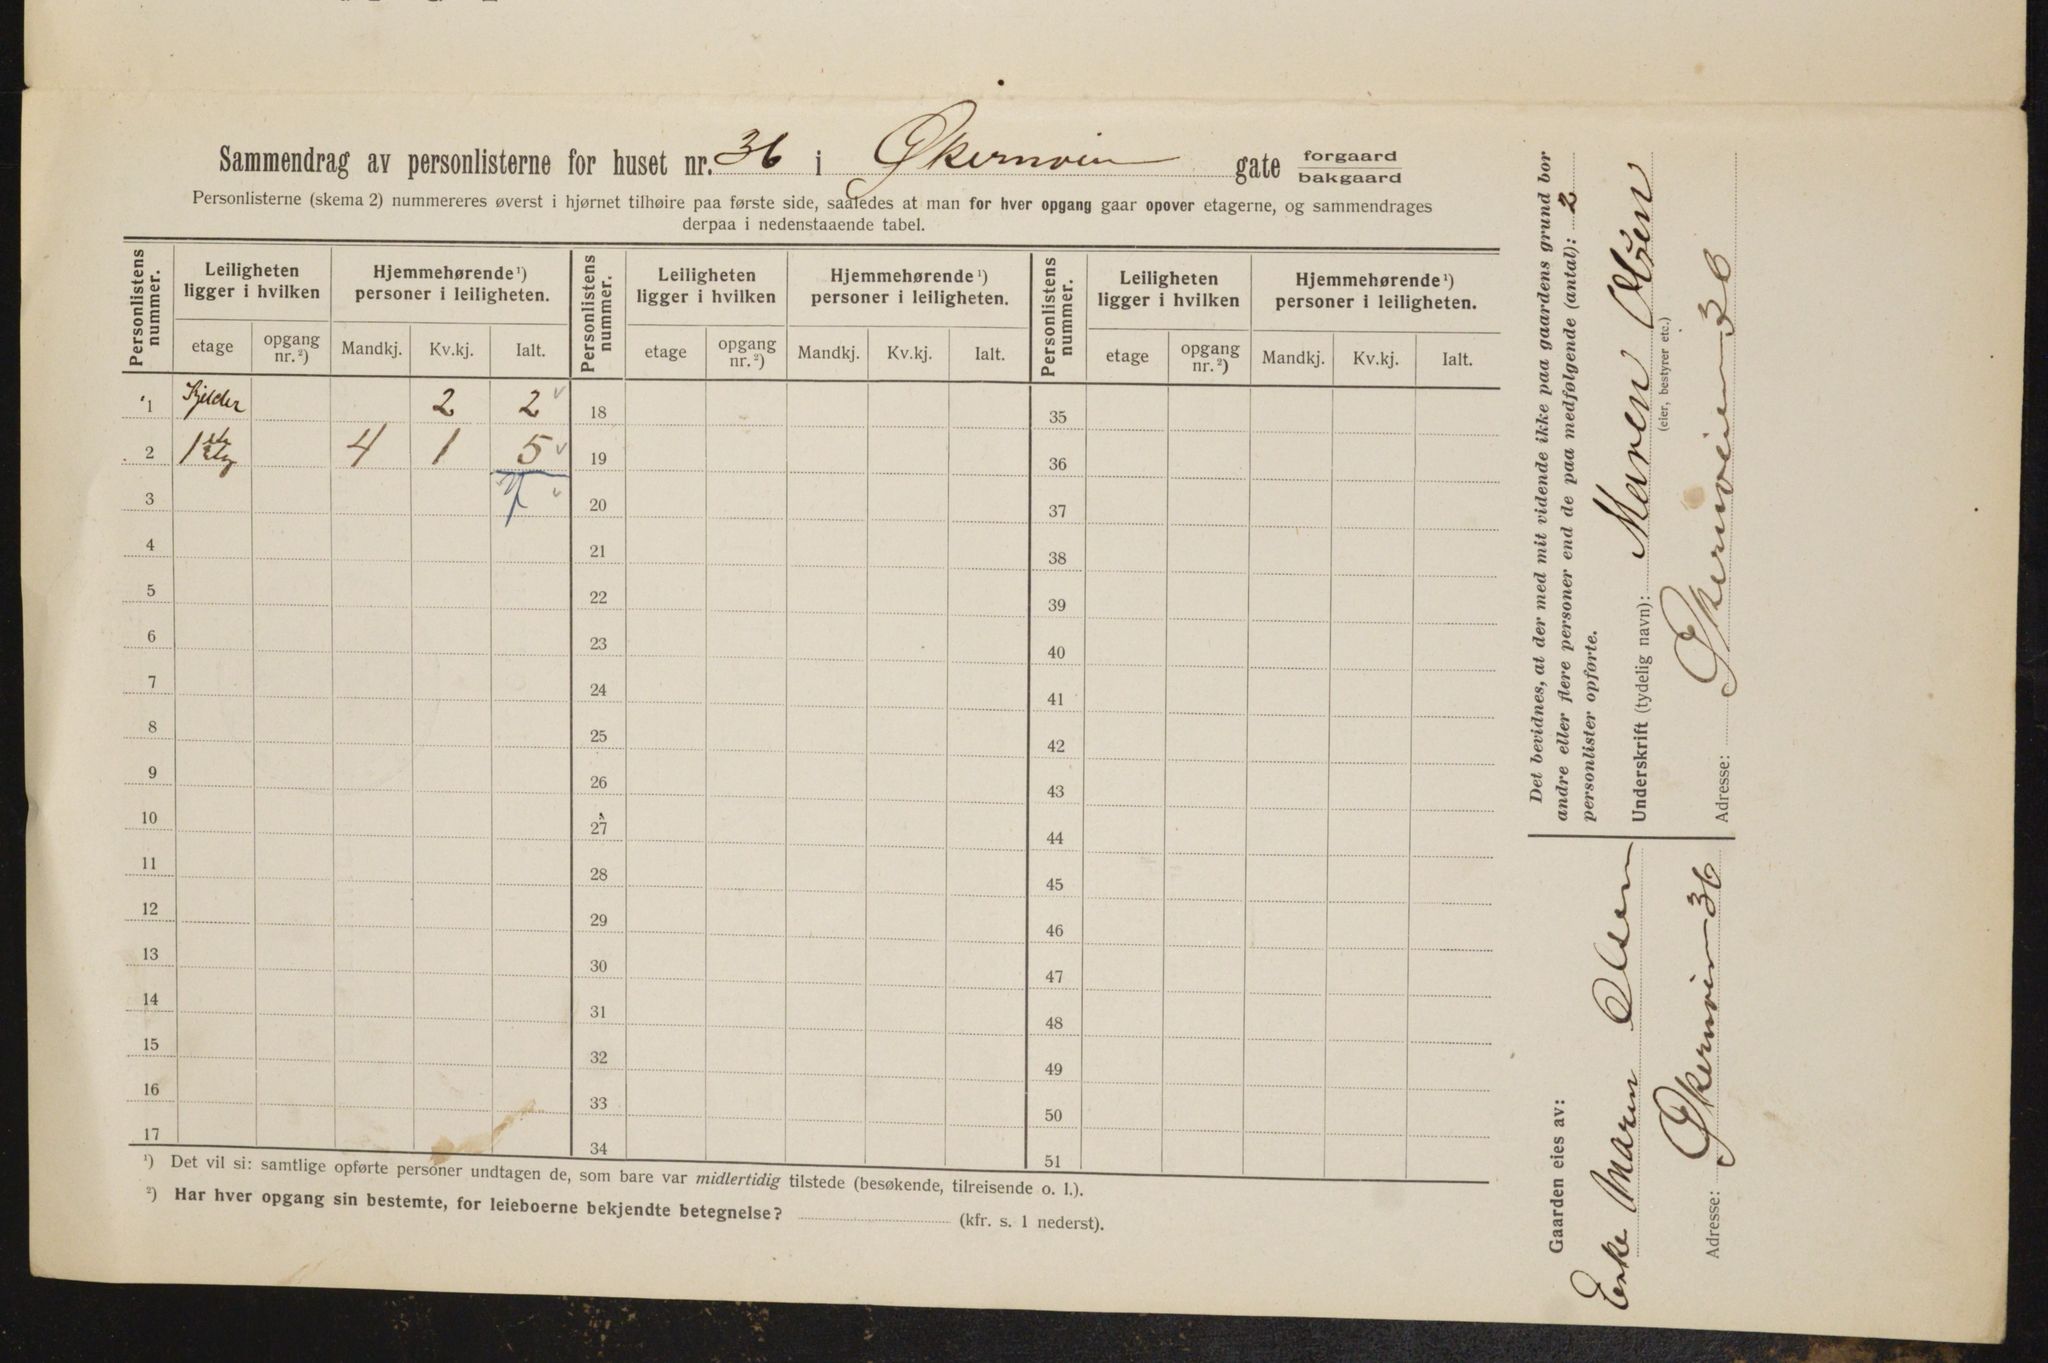 Sammendrag av personlisterne for huset nr. 36 i Økernveien gate forgaard bakgaard
Personlisterne (skema 2) nummereres øverst i hjørnet tilhøire paa første side, saaledes at man for hver opgang gaar opover etagerne, og sammendrages
derpaa i nedenstaaende tabel.
Personlistens nummer. Leiligheten ligger i hvilken Hjemmehørende ¹) personer i leiligheten. Personlistens nummer. Leiligheten ligger i hvilken Hjemmehørende ¹) personer i leiligheten. Personlistens nummer. Leiligheten ligger i hvilken Hjemmehørende ¹) personer i leiligheten.
etage opgang nr. ²) Mandkj. Kv.kj. Ialt. etage opgang nr. ²) Mandkj. Kv.kj. Ialt. etage opgang nr. ²) Mandkj. Kv.kj. Ialt.
1 Kjelder 2 2 18 35
2 1ste etg 4 1 5 19 36
3 7 20 37
4 21 38
5 22 39
6 23 40
7 24 41
8 25 42
9 26 43
10 27 44
11 28 45
12 29 46
13 30 47
14 31 48
15 32 49
16 33 50
17 34 51
¹) Det vil si: samtlige opførte personer undtagen de, som bare var midlertidig tilstede (besøkende, tilreisende o. l.).
²) Har hver opgang sin bestemte, for leieboerne bekjendte betegnelse? (kfr. s. 1 nederst).
Det bevidnes, at der med mit vidende ikke paa gaardens grund bor
andre eller flere personer end de paa medfølgende (antal): 2
personlister opførte.
Underskrift (tydelig navn): Maren Olsen
(eier, bestyrer etc.)
Adresse: Økernveien 36
Gaarden eies av:
Enke Maren Olsen
Adresse: Økernveien 36